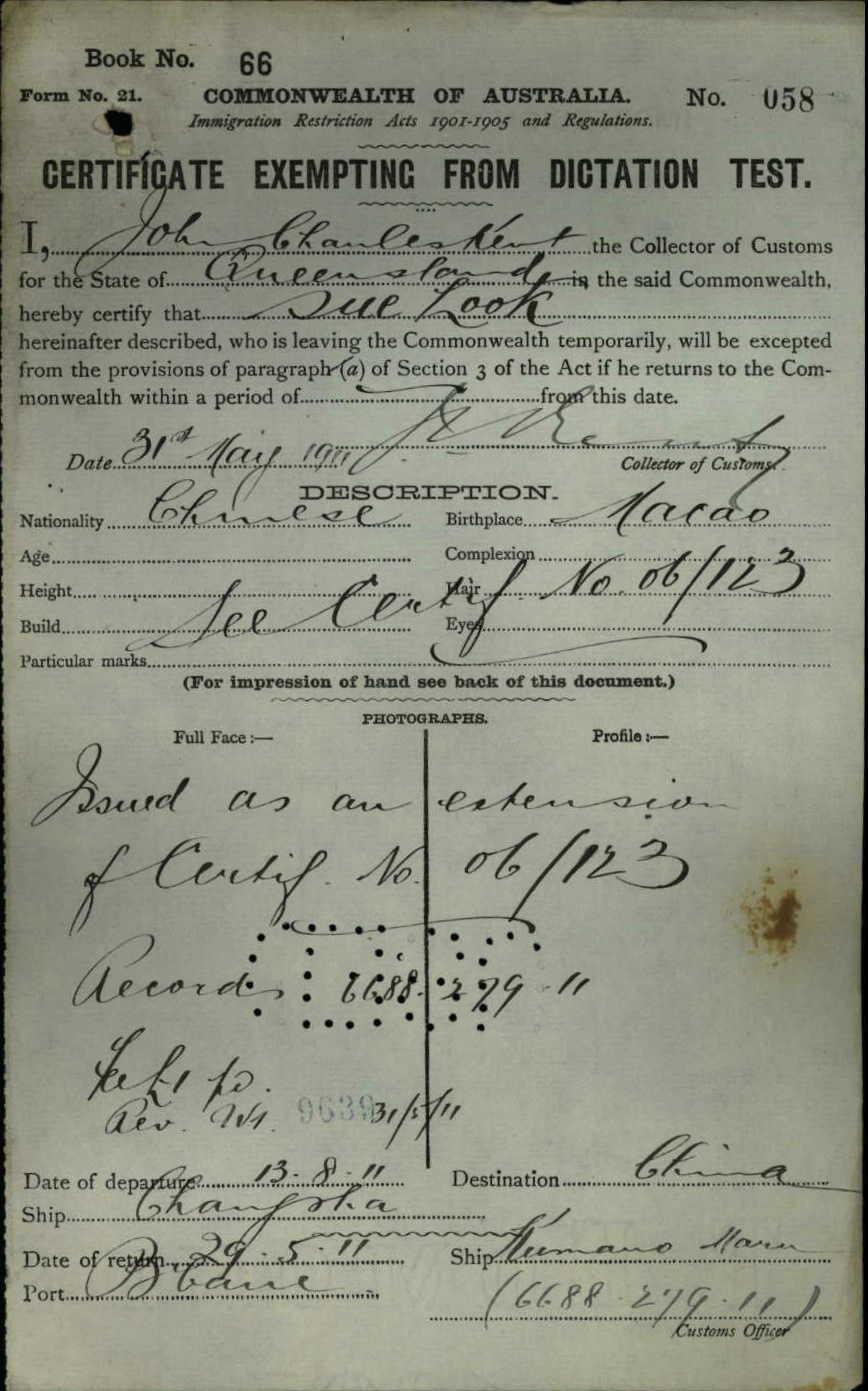 Book No. 66
Form No. 21. COMMONWEALTH OF AUSTRALIA. No. 058
Immigration Restriction Acts 1901-1905 and Regulations.
CERTIFICATE EXEMPTING FROM DICTATION TEST.
I, John Charles Kent the Collector of Customs
for the State of Queensland in the said Commonwealth,
hereby certify that Sue Look
hereinafter described, who is leaving the Commonwealth temporarily, will be excepted
from the provisions of paragraph (a) of Section 3 of the Act if he returns to the Com-
monwealth within a period of from this date.
Date 31st May 1911
Collector of Customs.
DESCRIPTION.
Nationality Chinese Birthplace Macao
Age Complexion
Height Hair
Build Eyes
See Certif. No. 06/123
Particular marks
(For impression of hand see back of this document.)
PHOTOGRAPHS.
Full Face:— Profile:—
Issued as an extension
of Certif. No. 06/123
Records 6688. 279 . 11
Fee £1 pd.
Rev. No. 9639 31/5/11
Date of departure 13. 8. 11 Destination China
Ship Changsha
Date of return 29. 5. 11 Ship Kumano Maru
Port B'bane (6688 . 279 . 11)
Customs Officer